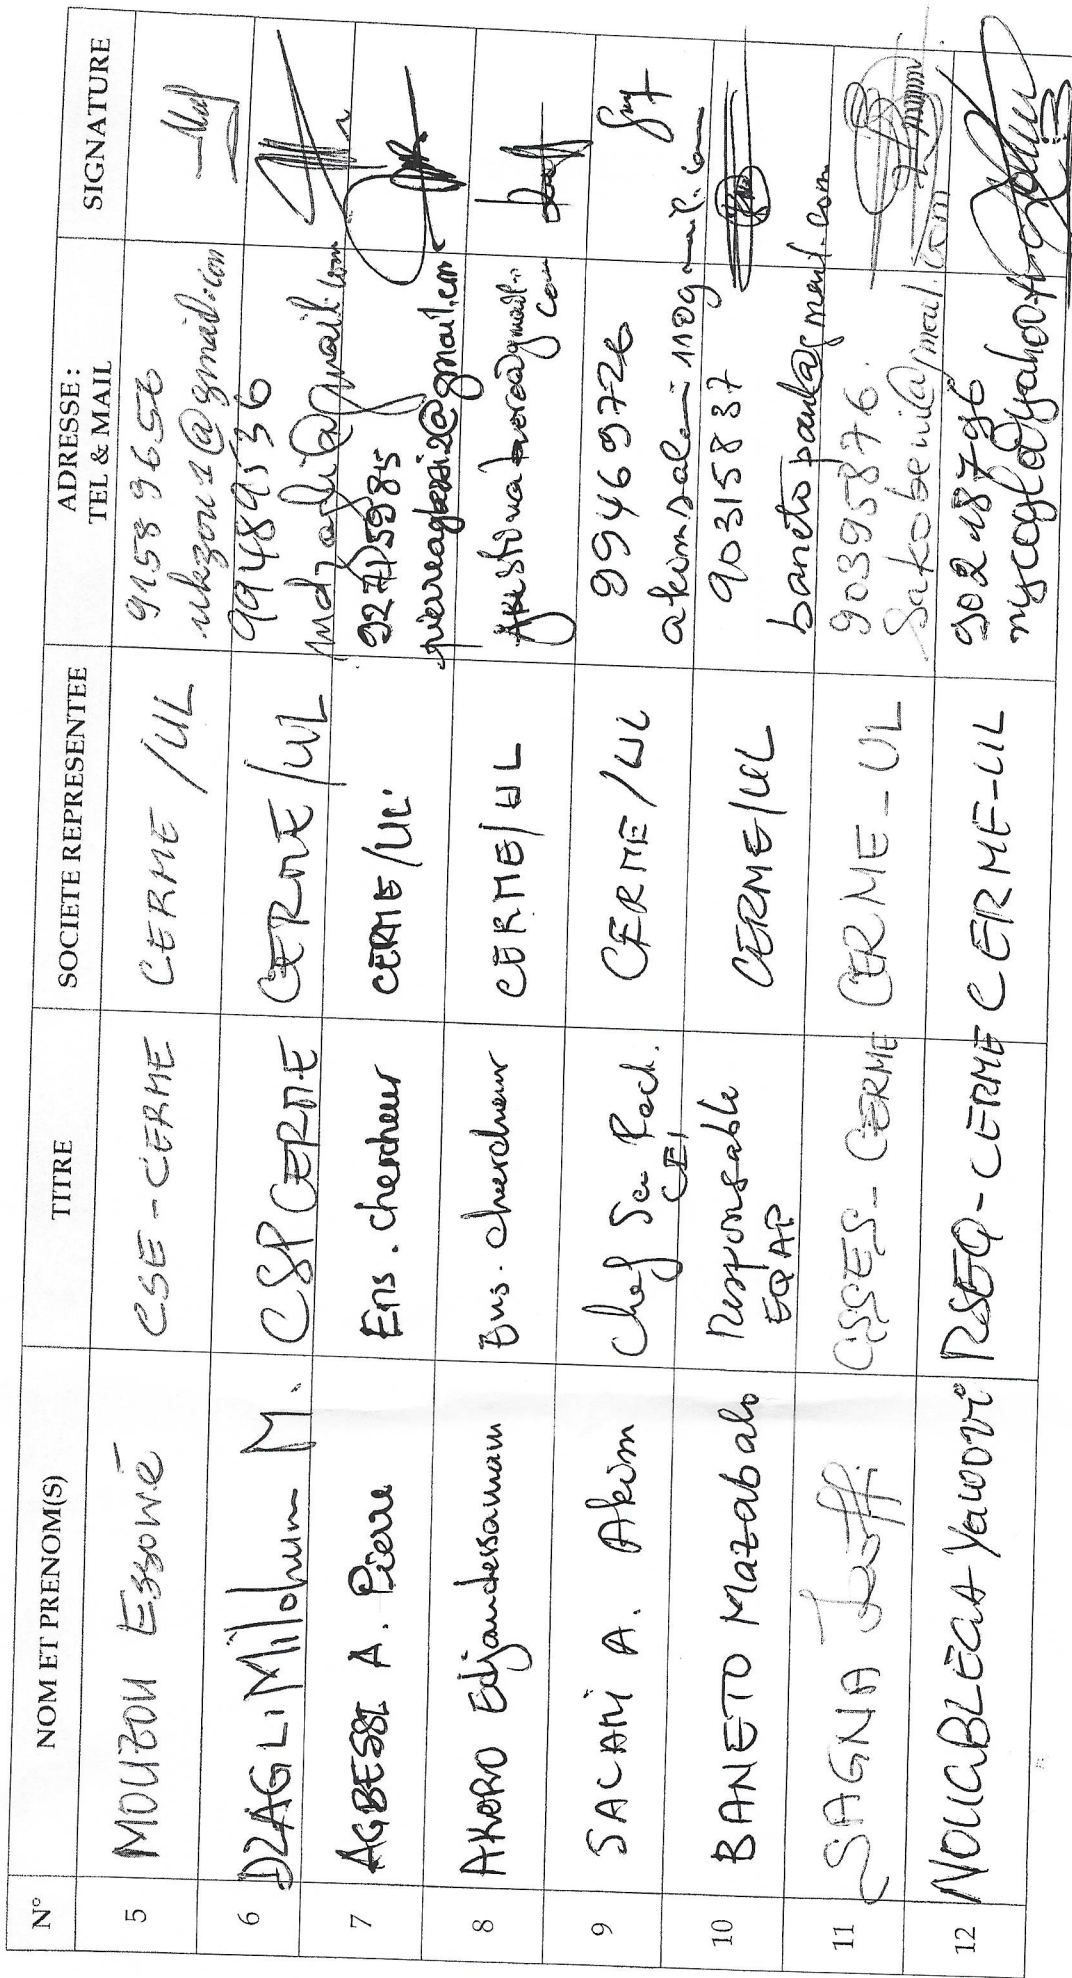 N° NOM ET PRENOM(S) TITRE SOCIETE REPRESENTEE ADRESSE : TEL & MAIL SIGNATURE
5 MOUZOU Essowè CSE-CERME CERME /UL 91589656
6 DZAGLI Milohum M. CSP CERME CERME/UL 99489536
7 AGBESSI A. Pierre Ens. chercheur CERME/UL 92715985
pierreagbessi2@gmail.com
8 AKORO Edjamdessamam Ens. chercheur CERME/UL
9 SALAMI A. Akim Chef Sce Rech. CEI CERME/UL 99469726
akim.salami110gmail.com
10 BANETO Mazabalo Responsable EQAP CERME/UL 90315837
banetopaul@gmail.com
11 SAGNA Koffi ASSES-CERME CERME-UL 90395876.
sakobenii@gmail.com
12 NOUGBLEGA Yawovi RSEQ-CERME CERME-UL 90218796
nycogla@yahoo.fr